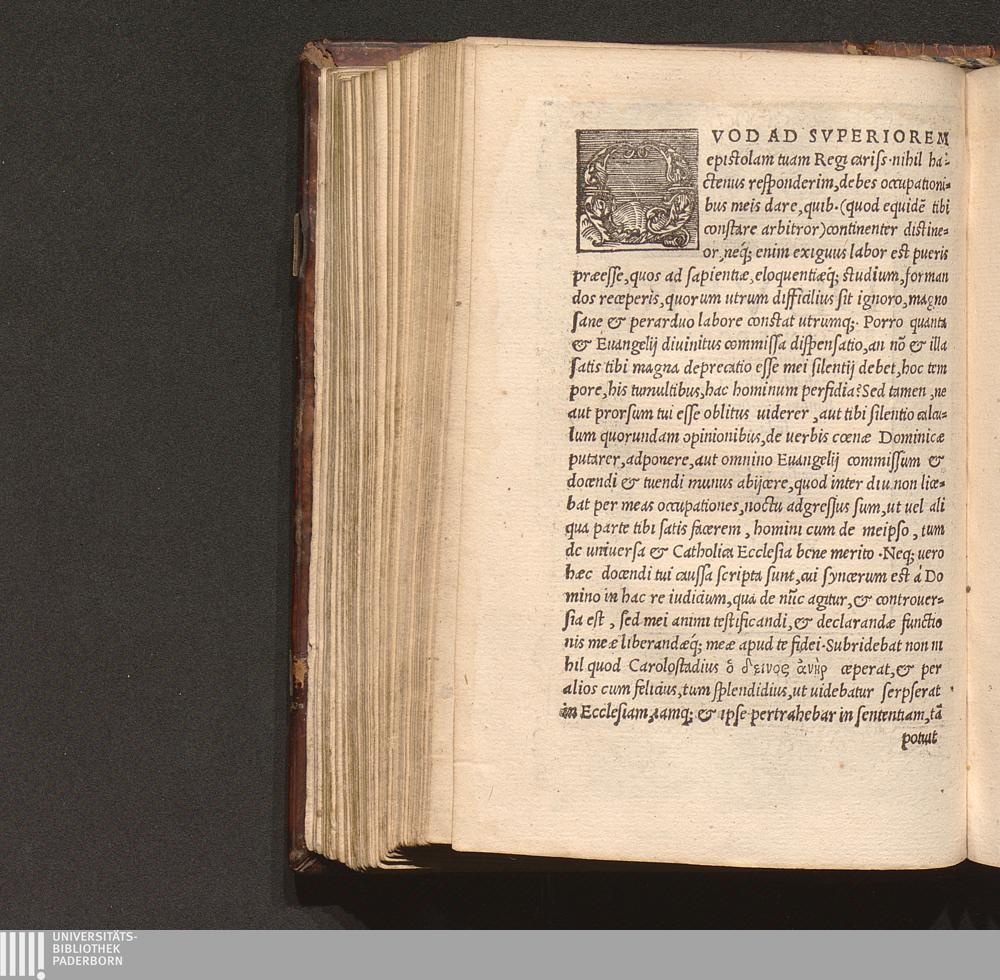 QVOD AD SVPERIOREM
epistolam tuam Regi cariss. nihil ha-
ctenus responderim, debes occupationi-
bus meis dare, quib. (quod equidē tibi
constare arbitror) continenter distine-
or, neq; enim exiguus labor est pueris
præesse, quos ad sapientiæ, eloquentiæq; studium, forman
dos receperis, quorum utrum difficilius sit ignoro, magno
sane & perarduo labore constat utrumq;. Porro quanta
& Euangelij diuinitus commissa dispensatio, an nō & illa
satis tibi magna deprecatio esse mei silentij debet, hoc tem
pore, his tumultibus, hac hominum perfidia? Sed tamen, ne
aut prorsum tui esse oblitus uiderer, aut tibi silentio calcu-
lum quorundam opinionibus, de uerbis cœnæ Dominicæ
putarer, adponere, aut omnino Euangelij commissum &
docendi & tuendi munus abijcere, quod inter diu non lice-
bat per meas occupationes, noctu adgressus sum, ut uel ali
qua parte tibi satis facerem, homini cum de meipso, tum
de uniuersa & Catholica Ecclesia bene merito. Neq; uero
hæc docendi tui caussa scripta sunt, cui syncerum est á Do
mino in hac re iudicium, qua de nūc agitur, & controuer-
sia est, sed mei animi testificandi, & declarandæ functio
nis meæ liberandæq́; meæ apud te fidei. Subridebat non ni
hil quod Carolostadius ὁ δεινος ἀνὴρ cæperat, & per
alios cum felicius, tum splendidius, ut uidebatur serpserat
in Ecclesiam, iamq; & ipse pertrahebar in sententiam, tā
potuit
UNIVERSITÄTS-
BIBLIOTHEK
PADERBORN